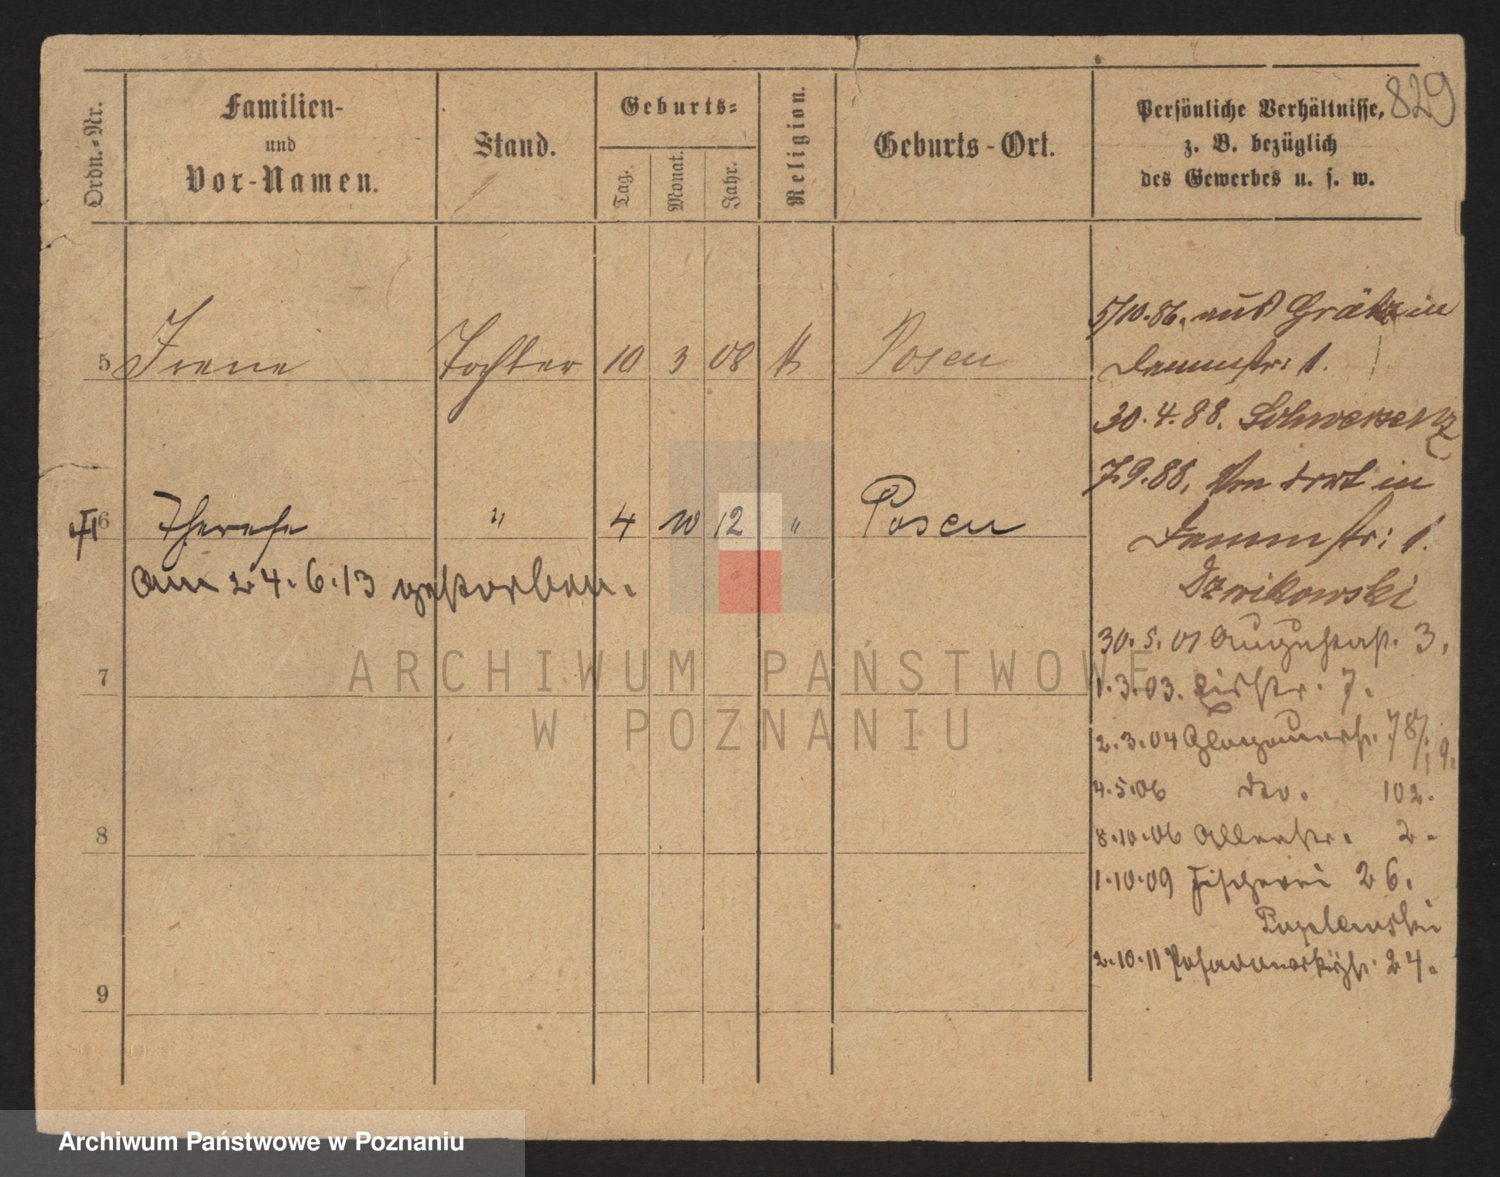 829
Ordn.-Nr.
Familien-
und
Vor-Namen.
Stand.
Geburts-
Tag.
Monat.
Jahr.
Religion.
Geburts-Ort.
Persönliche Verhältnisse,
z. B. bezüglich
des Gewerbes u. s. w.
5 Irene Tochter 10 3 08 k Posen
6 Therese " 4 10 12 " Posen
Am 24.6.13 gestorben.
7
8
9
5/10.86. aus Grätz in
Dammstr: 1.
30.4.88. Schwersenz
7.9.88. Von dort in
Dammstr: 1.
Dzwikowski
30.5.01 Augustast. 3.
1.3.03. 7.
2.3.04 Glogauerst. 78/79.
4.5.06 dto. 102.
8.10.06 Alleestr. 2.
1.10.09 Fischerei 26.
2.10.11 24.
ARCHIWUM PAŃSTWOWE
W POZNANIU
Archiwum Państwowe w Poznaniu